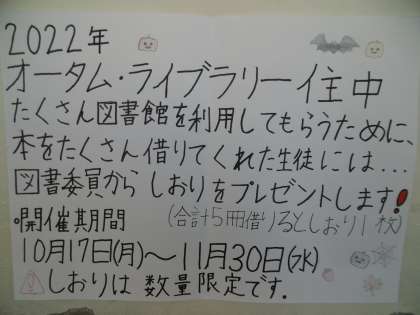 2022年
オータム・ライブラリー住中
たくさん図書館を利用してもらうために、
本をたくさん借りてくれた生徒には...
図書委員からしおりをプレゼントします!
・開催期間 (合計5冊借りるとしおり1枚)
10月17日(月)～11月30日(水)
しおりは数量限定です.